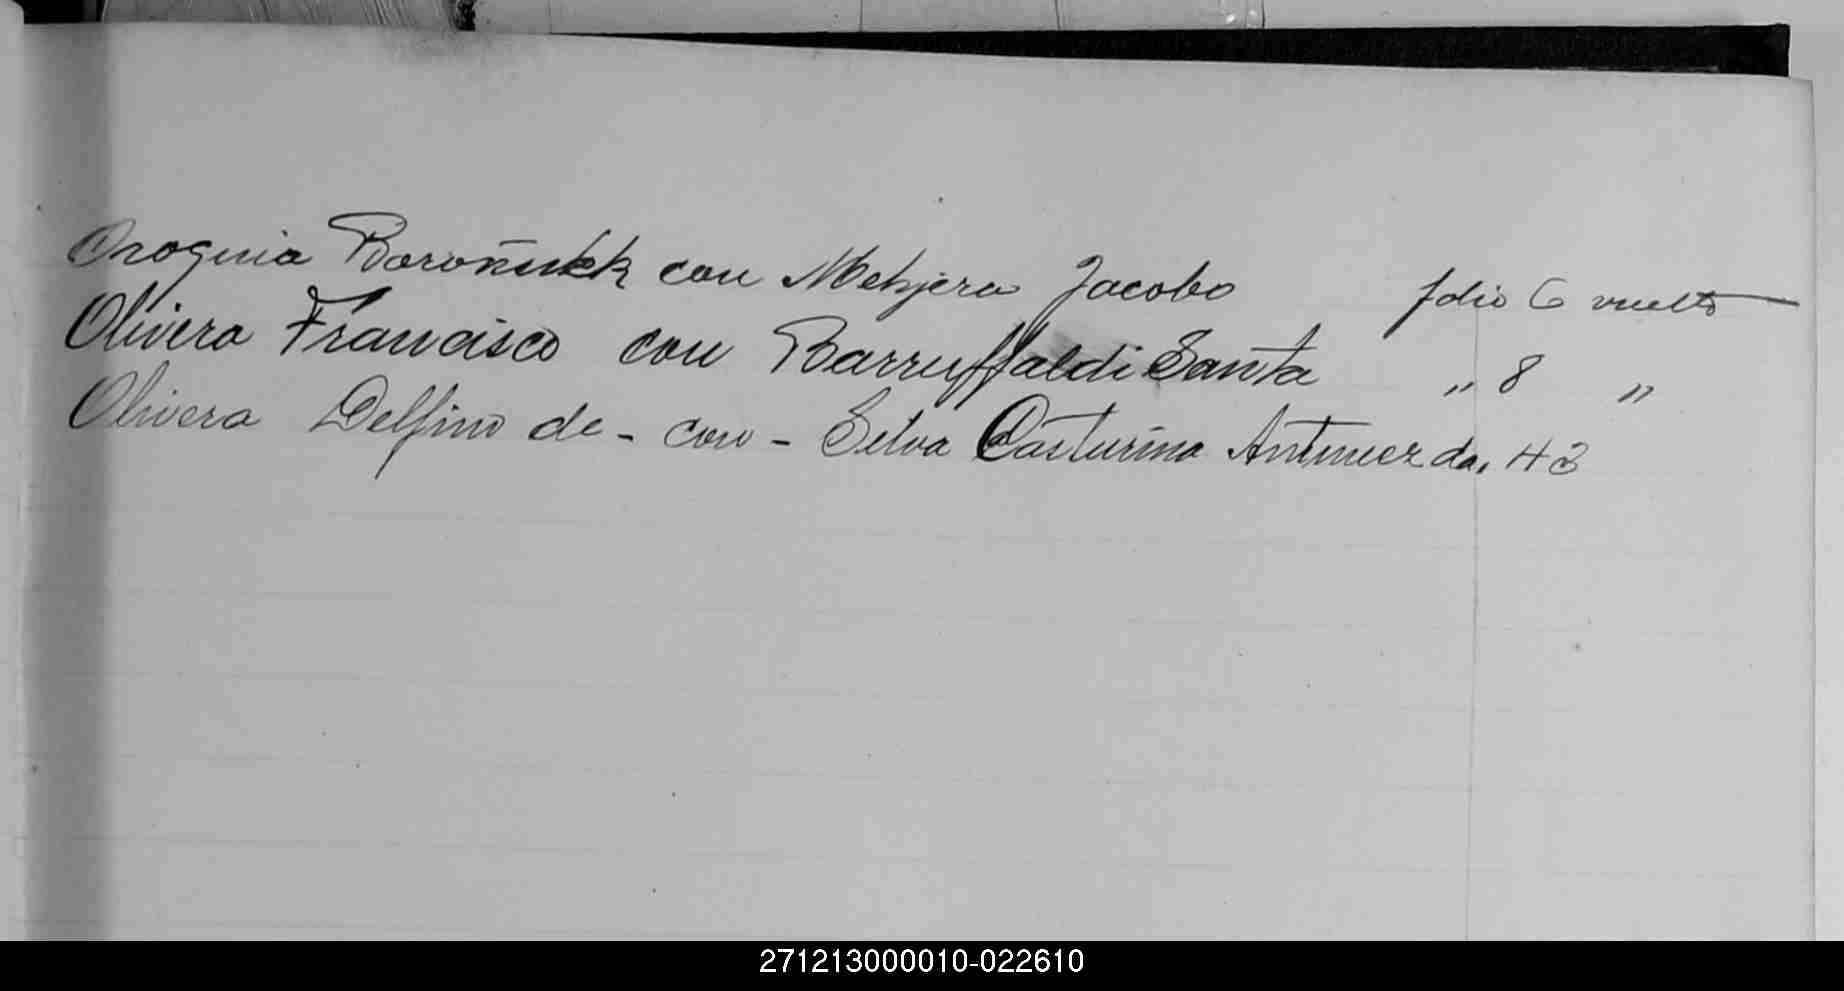 Oroquia con Mehjera Jacobo folio 6 vuelto
Olivera Francisco con Barruffaldi Santa " 8 "
Olivera Delfino de - con - Silva Casturina Antunez da. 43
271213000010-022610